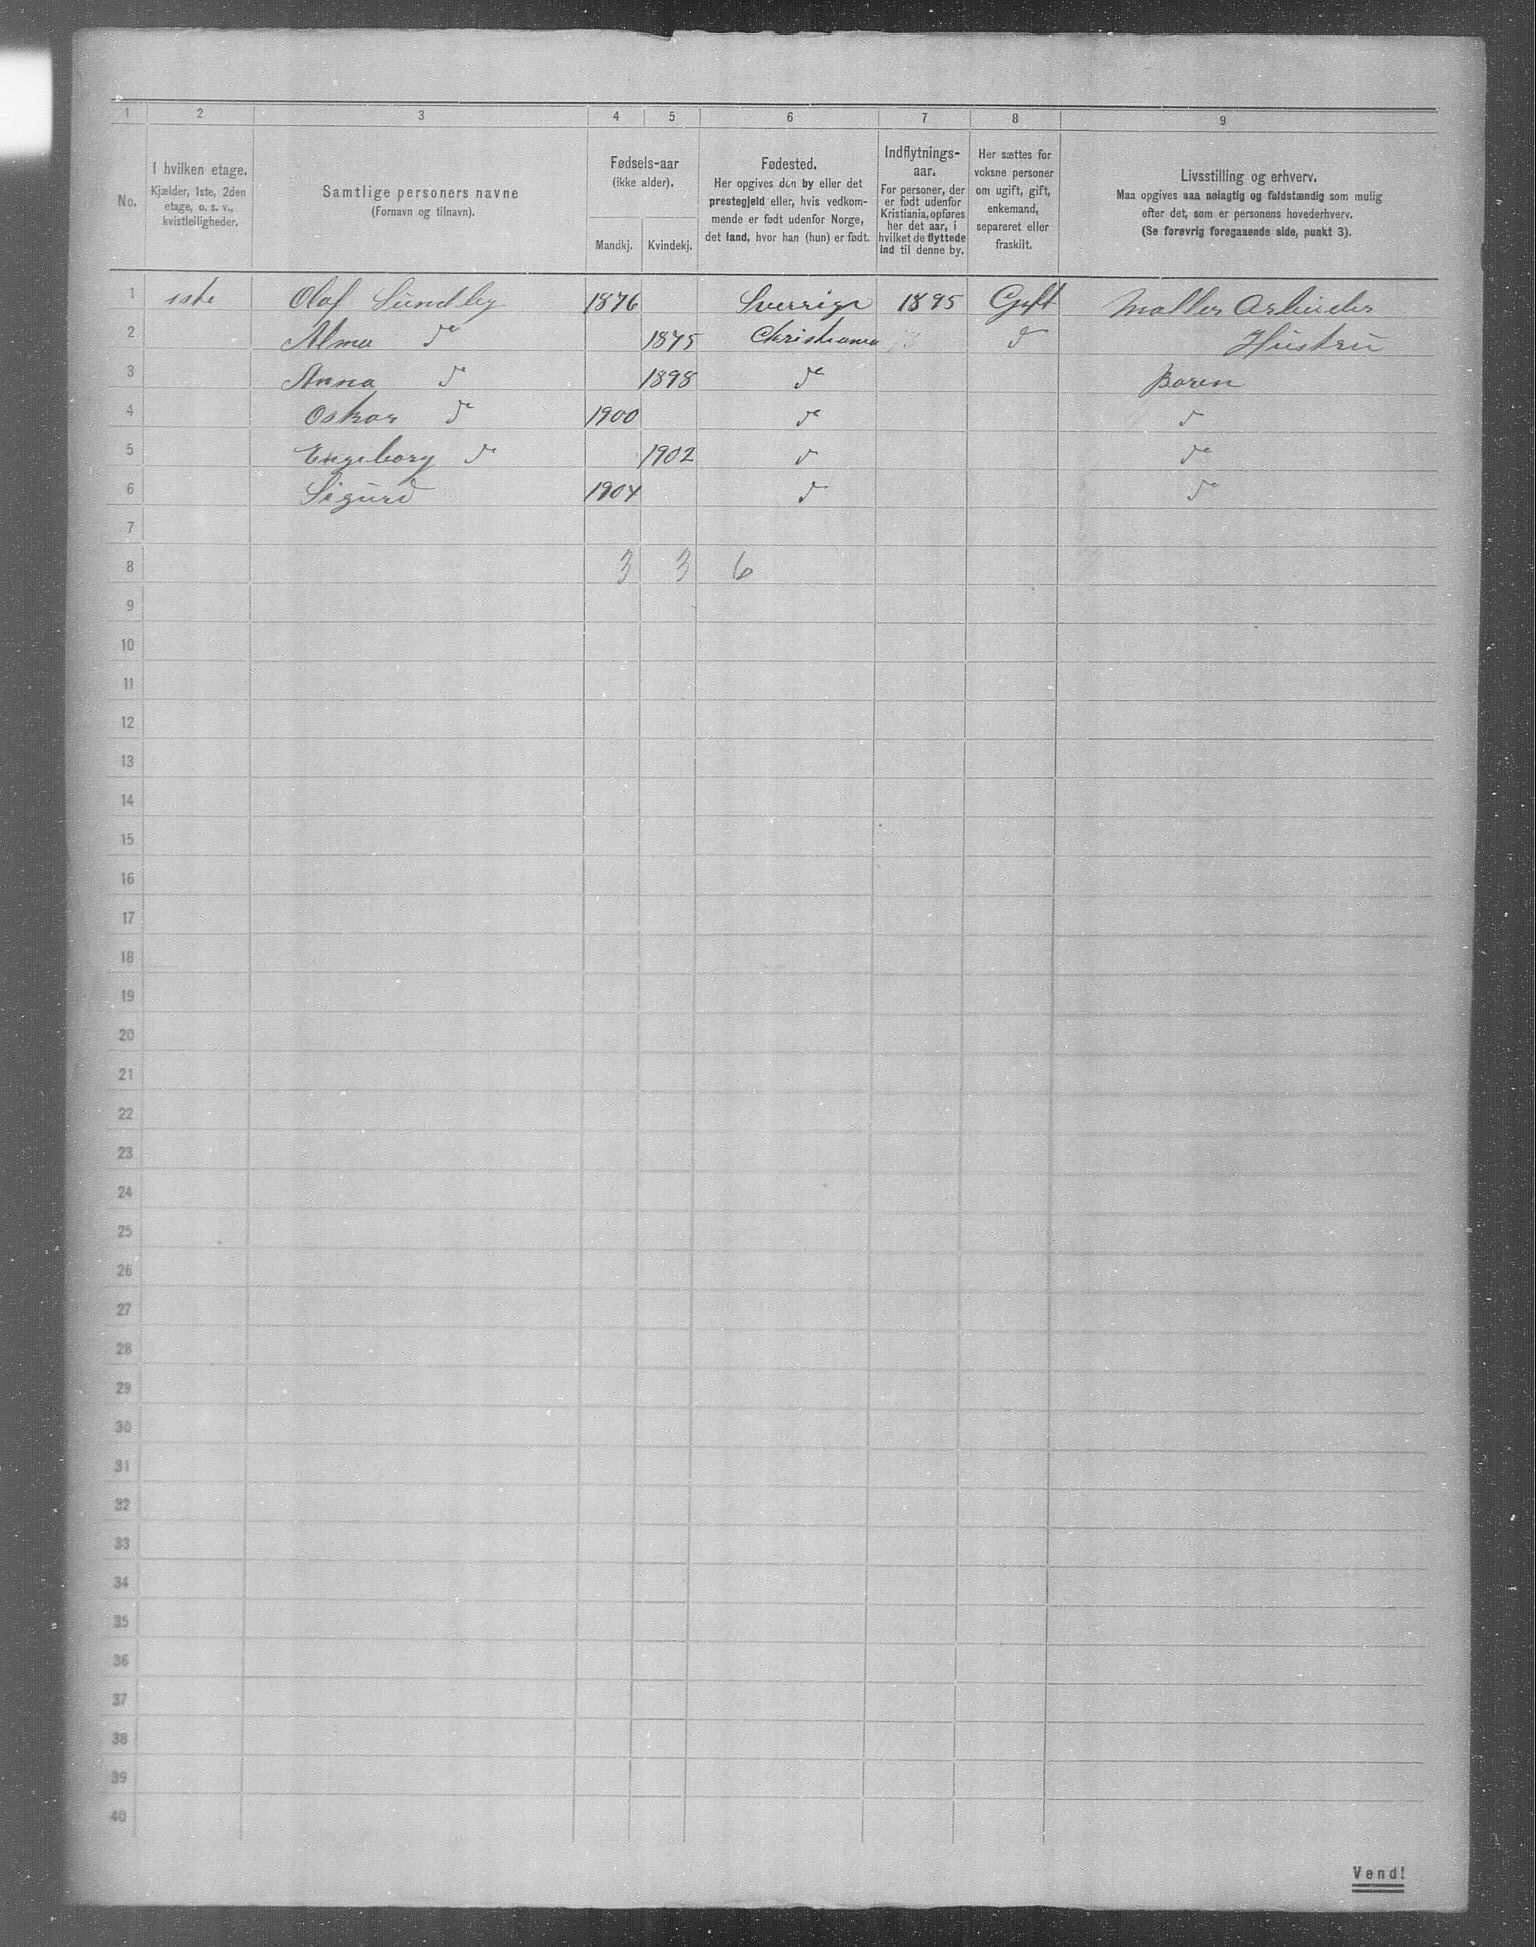 1 2 3 4 5 6 7 8 9
No.
I hvilken etage.
Kjælder, 1ste, 2den
etage, o. s. v.,
kvistleiligheder.
Samtlige personers navne
(Fornavn og tilnavn).
Fødsels-aar
(ikke alder).
Mandkj. Kvindekj.
Fødested.
Her opgives den by eller det
prestegjeld eller, hvis vedkom-
mende er født udenfor Norge,
det land, hvor han (hun) er født.
Indflytnings-
aar.
For personer, der
er født udenfor
Kristiania, opføres
her det aar, i
hvilket de flyttede
ind til denne by.
Her sættes for
voksne personer
om ugift, gift,
enkemand,
separeret eller
fraskilt.
Livsstilling og erhverv.
Maa opgives saa nøiagtig og fuldstændig som mulig
efter det, som er personens hovederhverv.
(Se forøvrig foregaaende side, punkt 3).
1 1ste Olaf Sundby 1876 Sverrige 1895 Gift Møller Arbeider
2 Alma do 1875 Christiania do Hustru
3 Anna do 1898 do Baren
4 Oskar do 1900 do do
5 Engeborg do 1902 do do
6 Sigurd 1904 do do
7
8 3 3 6
9
10
11
12
13
14
15
16
17
18
19
20
21
22
23
24
25
26
27
28
29
30
31
32
33
34
35
36
37
38
39
40
Vend!